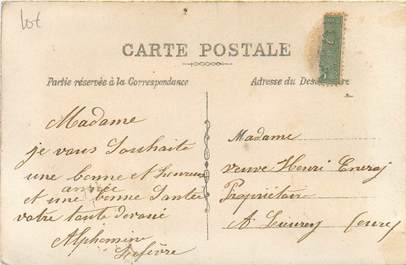 lot
CARTE POSTALE
Partie réservée à la Correspondance
Adresse du Des
Madame
je vous Souhaite
une bonne et heureuse
année
et une bonne Santée
votre toute devoué
Alphonsin
Lefèvre
Madame
veuve Henri
Propriétaire
A